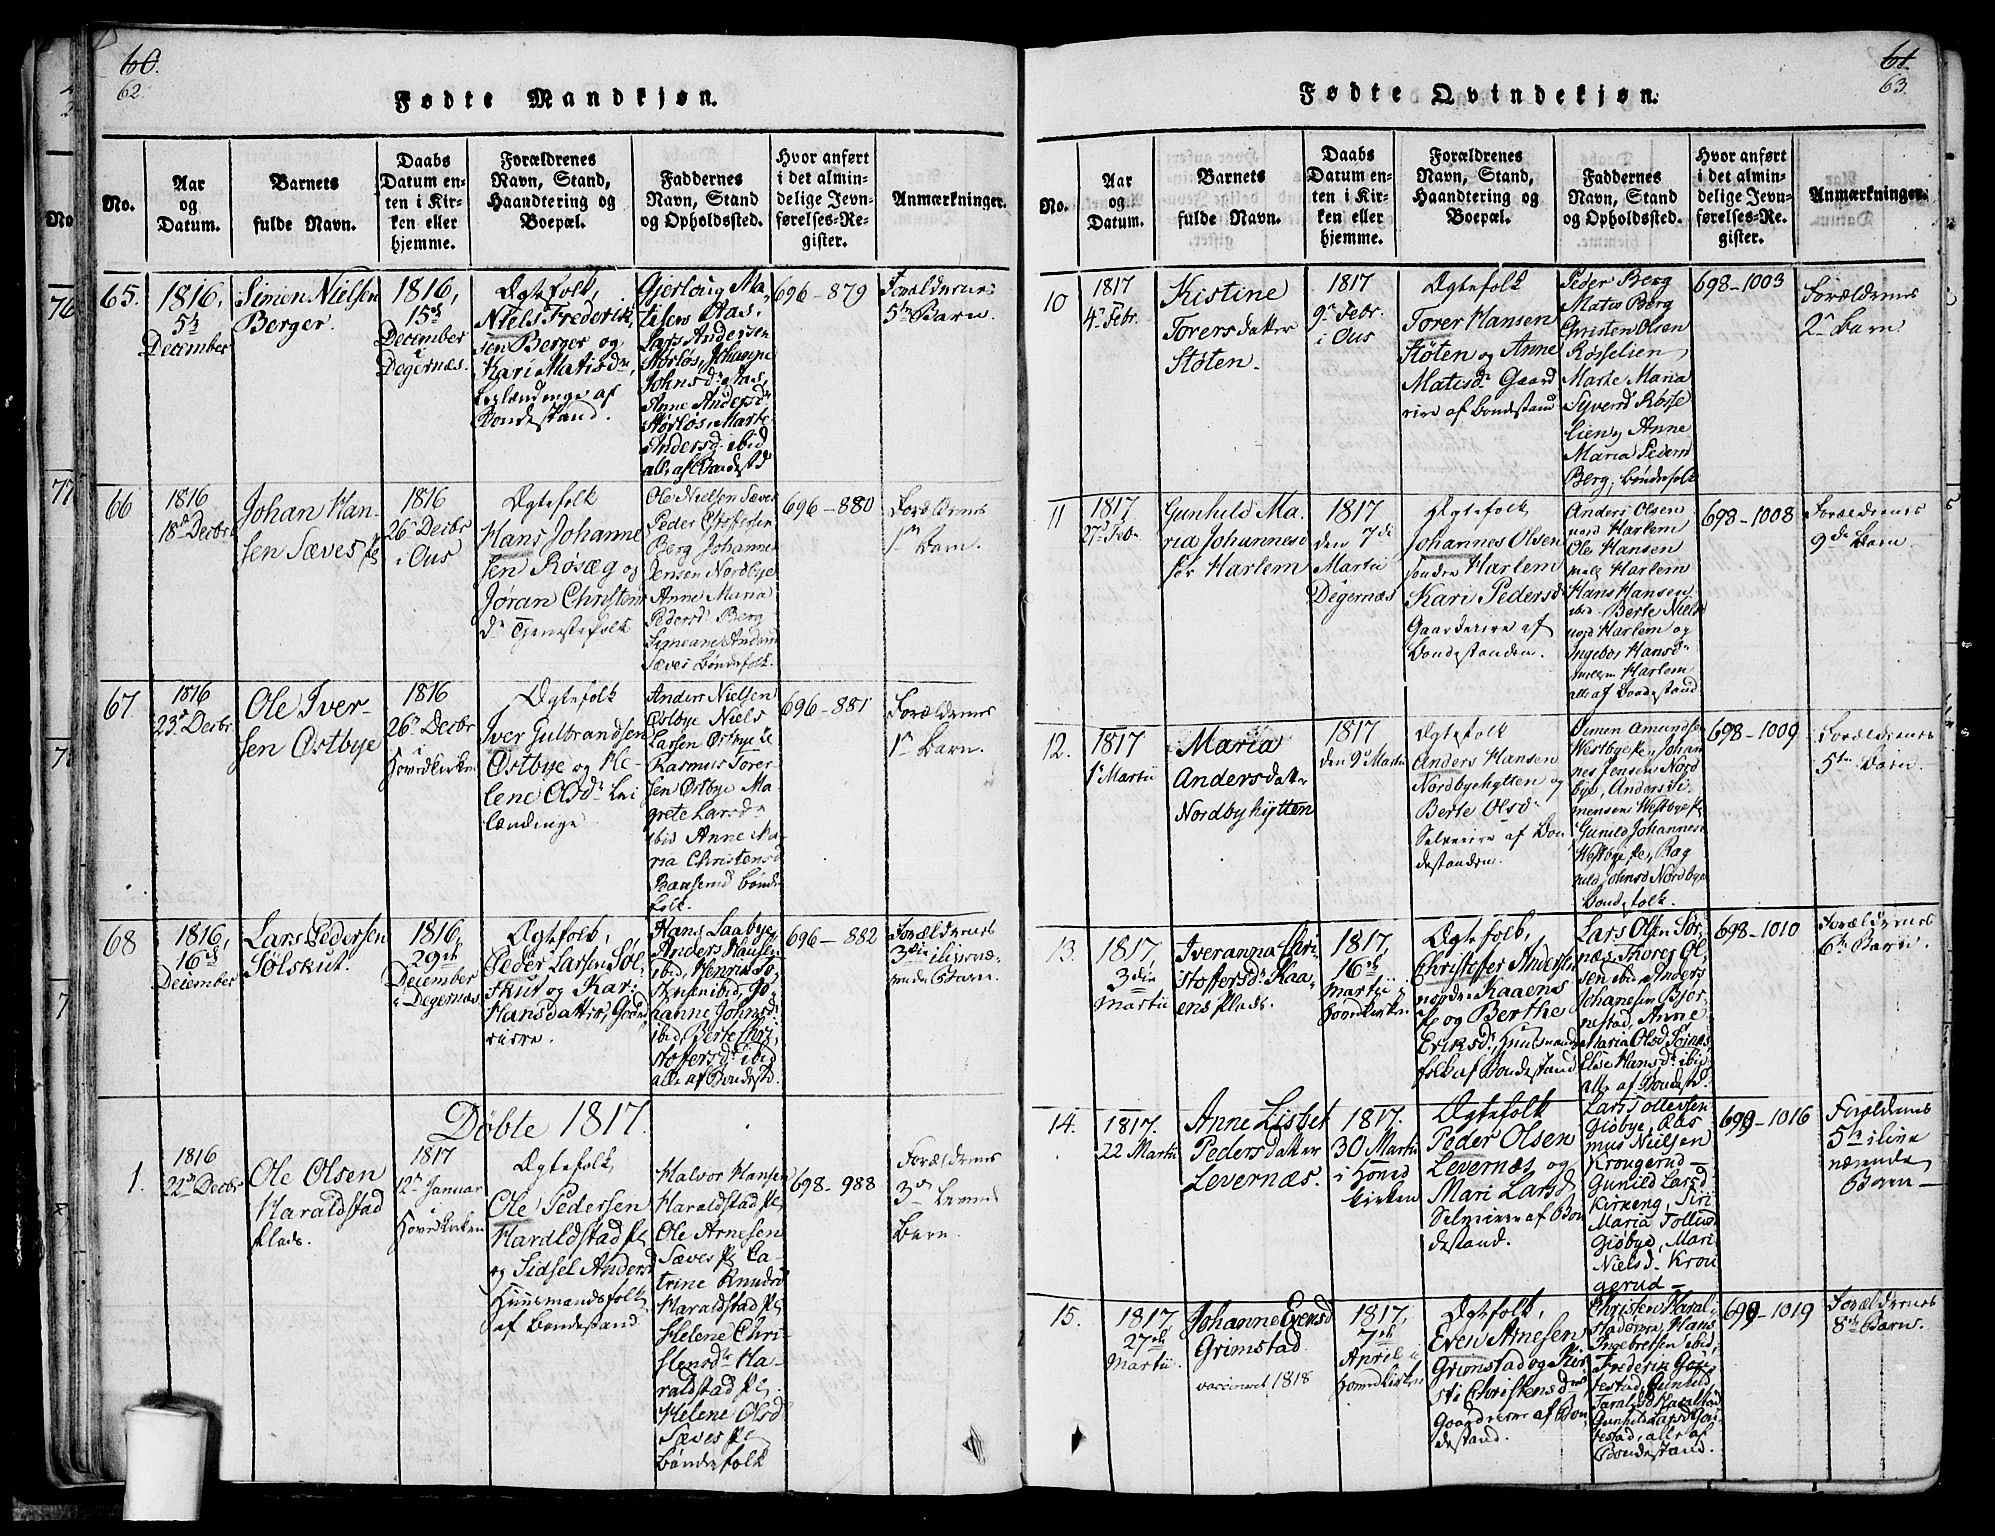 60.
62.
Fødte Mandkjøn.
No.
Aar
og
Datum.
Barnets
fulde Navn.
Daabs
Datum en-
ten i Kir-
ken eller
hjemme.
Forældrenes
Navn, Stand,
Haandtering og
Boepæl.
Faddernes
Navn, Stand
og Opholdssted.
Hvor anført
i det almin-
delige Jevn-
førelses-Re-
gister.
Anmærkninger.
65.
1816,
5te
December
Simen Nielsen
Berger.
1816,
15de
December
i
Degernæs.
Ægtefolk,
Niels Frederik-
sen Berger og
Kari Matisdr,
af
Bondestand.
Gjerloug Ma-
tisens Aas,
Lars Andersen
Størløs, Johanne
Johnsdr Aas,
Anne Andersdr
Størløs, Marte
Andersdr ibid
alle af Bondestd
696-879
Forældrenes
5te Barn.
66
1816
18de Decbr
Johan Han-
sen Sæves Pl
1816
26de Decbr
i Ous
Ægtefolk
Hans Johanne
sen Røsæg og
Jøran Christens
dr Tjenestefolk
Ole Nielsen Sæves
Peder Christofersen
Berg Johannes
Jensen Nordbye
Anne Maria
Pedersd Berg
Simeane Anders
Sæves Bøndefolk.
696-880
Forældrenes
1te Barn.
67.
1816
23de Decbr
Ole Iver-
sen Østbye
1816
26de Decbr
i
Hovedkirken
Ægtefolk
Iver Gulbrandsen
Østbye og He-
lene Olsdr Lei
lændinge
Anders Nielsen
Østbye Niels
Larsen Østbye
Rasmus Torer
sen Østbye Ma
grete Larsdr
ibid Anne Ma-
ria Christensd
Bønde
folk.
696-881
Forældrenes
1te Barn.
68
1816,
16de
December
Lars Pedersen
Sølskut.
1816,
29de
December
i Degernæs
Ægtefolk,
Peder Larsen Søl-
skut og Kari
Hansdatter, Gaard
eiere.
Hans Saabye,
Anders Hansen
ibid, Henrik
ibid, Jo-
hanne Johnsdr
ibid, Berte Chri-
stoffersdr ibid
alle af Bondestd.
696-882
Forældrenes
3die ilivevæ-
rende Barn.
Døbte 1817.
1.
1816
22de Decbr
Ole Olsen
Haraldstad
Plads.
1817
12te Januar
i
Hovedkirken
Ægtefolk
Ole Pedersen
Haraldstad Pl
og Sidsel Andersd
Huusmandsfolk
af Bondestand
Halvor Hansen
Haraldstad Pl
Ole Arnesen
Sæves Pl Ca-
trine Knudsd
Haraldstad Pl
Helene Chri-
stensdr Ha-
raldstad Pl
Helene Olsd
Sæves Pl
Bøndefolk
698-988
Forældrenes
3die levende
Barn.
61.
63.
Fødte Qvindekjøn.
No.
Aar
og
Datum.
Barnets
fulde Navn.
Daabs
Datum en-
ten i Kir-
ken eller
hjemme.
Forældrenes
Navn, Stand,
Haandtering og
Boepæl.
Faddernes
Navn, Stand
og Opholdssted.
Hvor anført
i det almin-
delige Jevn-
førelses-Re-
gister.
Anmærkninger.
10
1817
4de Febr.
Kistine
Torersdatter
Støten.
1817
9de Febr.
i Ous
Ægtefolk
Torer Hansen
Støten og Anne
Matisdr Gaard
eiere af Bondestand
Peder Berg
Matis Berg
Christen Olsen
Røsselien
Marte Maria
Syversd Røsse
lien, Anne
Maria Pedersd
Berg, Bøndefolk
698-1003
Forældrenes
2de Barn
11
1817
27de Feb.
Gunhild Ma-
ria Johannesd
Harlem
1817
den 7de
Martii
i
Degernæs
Ægtefolk
Johannes Olsen
søndre Harlem
Kari Pedersd
Gaardeiere af
Bondestanden.
Anders Olsen
nord Harlem
Ole Hansen
Harlem
Hans Hansen
ibid. Berte Niels
nord Harlem og
Ingebor Hansdr
Harlem
alle af Bondestand
698-1008
Forældrenes
9de Barn
12.
1817
1te Martii
Maria
Andersdatter
Nordbyhytten
1817
den 9de Martii
Ægtefolk
Anders Hansen
Nordbyehytten og
Berte Olsdr
Selveiere af Bon
destanden.
Simen Amundsen
Westbye Pl, Johan
nes Jensen Nord
bye, Anders Si
mensen Westbye Pl
Gunild Johannesd
Westbye Pl, Rag
nild Jensd Nordbye
Bondefolk.
698-1009
Forældrenes
5te Barn.
13.
1817,
3die
Martii
Iveranna Chri
stoffersdr Kaa-
ens Plads.
1817,
16de
Martii i
Hovedkirken
Ægtefolk,
Christoffer Andersen
nordre Kaaens
Pl og Berthe
Eriksdr, Huusmands
folk af Bondestand
Lars Olsen Sør-
næs, Thores Ol-
sen ibid, Anders
Johanesen Bjør-
nestad, Anne
Maria Olsd Sønes
Else Hansdr ibid
alle af Bondestd.
698-1010
Forældrenes
6te Barn.
14.
1817.
22 Martii
Anne Lisbet
Pedersdatter
Levernæs.
1817.
30 Martii
i Hoved
kirken
Ægtefolk
Peder Olsen
Levernæs og
Mari Larsd
Selveiere af Bon
destand.
Lars Tollefsen
Gisbye, Ras
mus Nielsen
Krougerud –
Gunild Larsd
Kirkeng, Siri
Maria Tollefsd
Gisbye, Mari
Nielsd. Krou
gerud –
699-1016
Forældrenes
5te ilive
værende
Barn –
15.
1817.
27de
Martii.
Johanne Evensd
Grimstad.
vaccineret 1818
1817,
7de
April i
Hovedkirken
Ægtefolk,
Even Arnesen
Grimstad og Kir
sti Christensdr
Gaardeiere af Bon
destand.
Christen Haral-
stad, Hans
Ingebretsen ibid,
Frederik Gou
testad, Gunhild
Haralstad
Gunhild Larsd Gou
testad, alle af
Bondestand.
699-1019
Forældrenes
8de Barn.